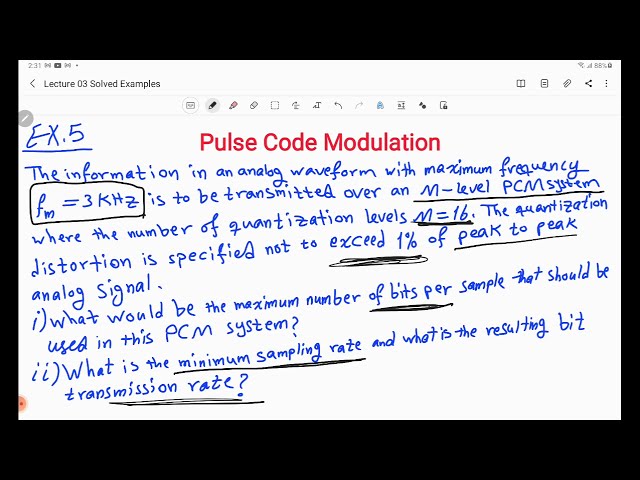 2:31
88%
Lecture 03 Solved Examples
EX.5
Pulse Code Modulation
The information in an analog waveform with maximum frequency
fm = 3 KHz is to be transmitted over an M-level PCM system
where the number of quantization levels M=16. The quantization
distortion is specified not to exceed 1% of peak to peak
analog signal.
i) What would be the maximum number of bits per sample that should be
used in this PCM system?
ii) What is the minimum sampling rate and what is the resulting bit
transmission rate?